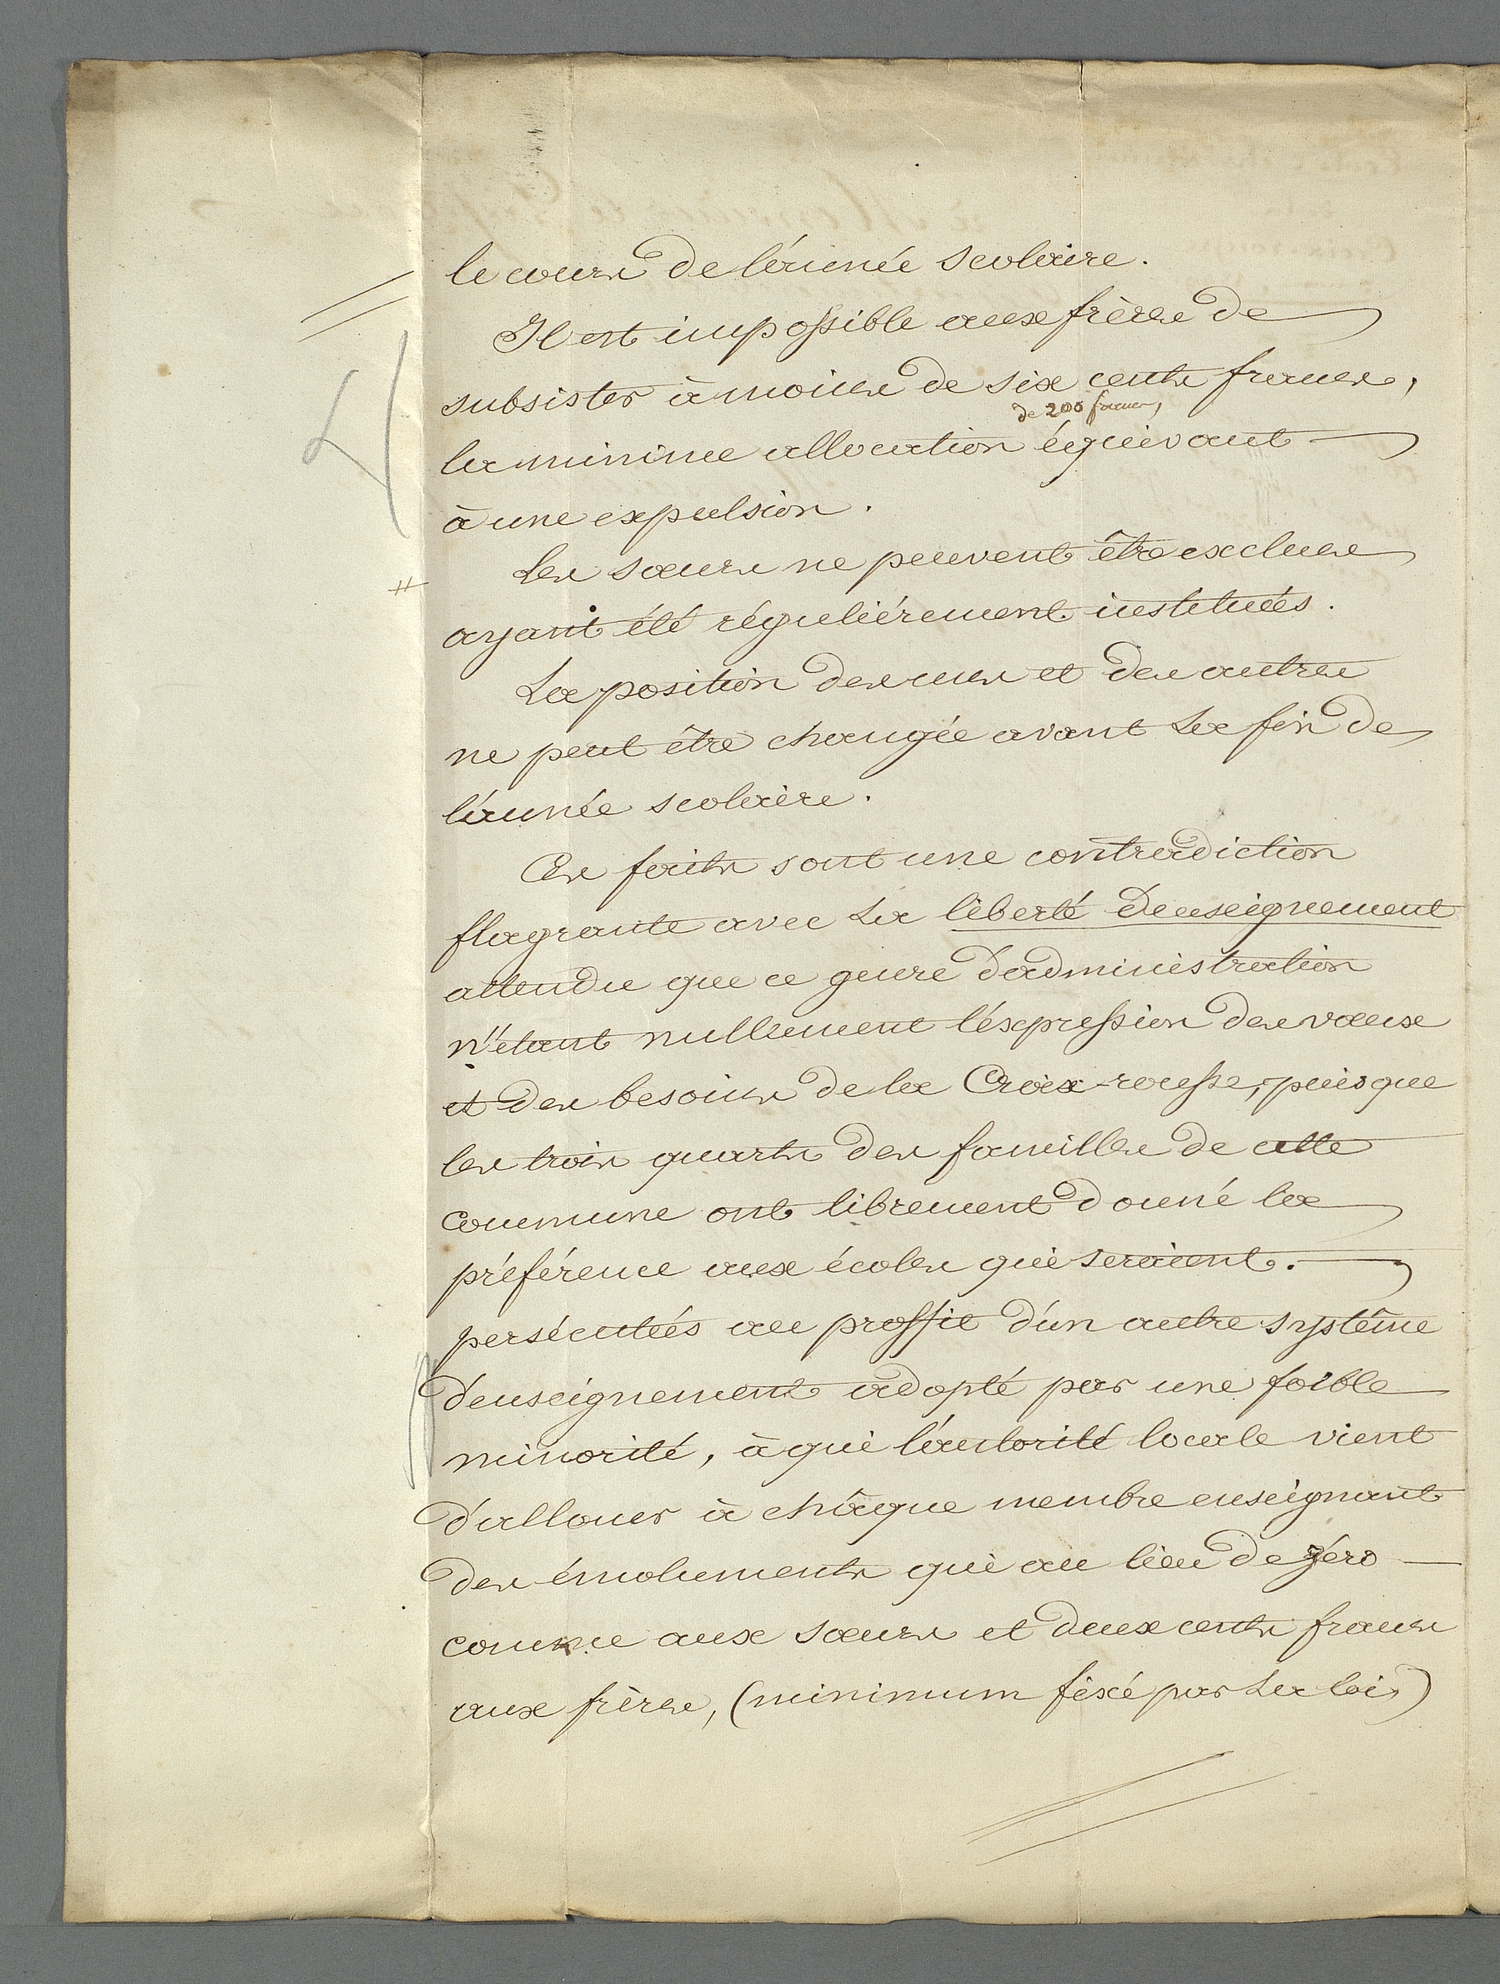 le cours de l'année scolaire.
Il est impossible aux frères de
subsister à moins de six cents francs,
de 200 francs,
la minime allocation équivaut
à une expulsion.
Les sœurs ne peuvent être exclues
ayant été régulièrement instituées.
La position des unes et des autres
ne peut être changée avant la fin de
l'année scolaire.
Ces faits sont une contradiction
flagrante avec la liberté d'enseignement
attendu que ce genre d'administration
n'étant nullement l'éxpression des vœux
et des besoins de la Croix-rousse, puisque
les trois quarts des familles de cette
commune ont librement donné la
préférence aux écoles qui seraient.
persécutées au proffit d'un autre système
d'enseignement adopté par une foible
minorité, à qui l'autorité locale vient
d'allouer à chaque membre enseignant
des émoluments qui au lieu de zéro
comme aux sœurs et deux cents francs
aux frères, (minimum fixé par la loi)